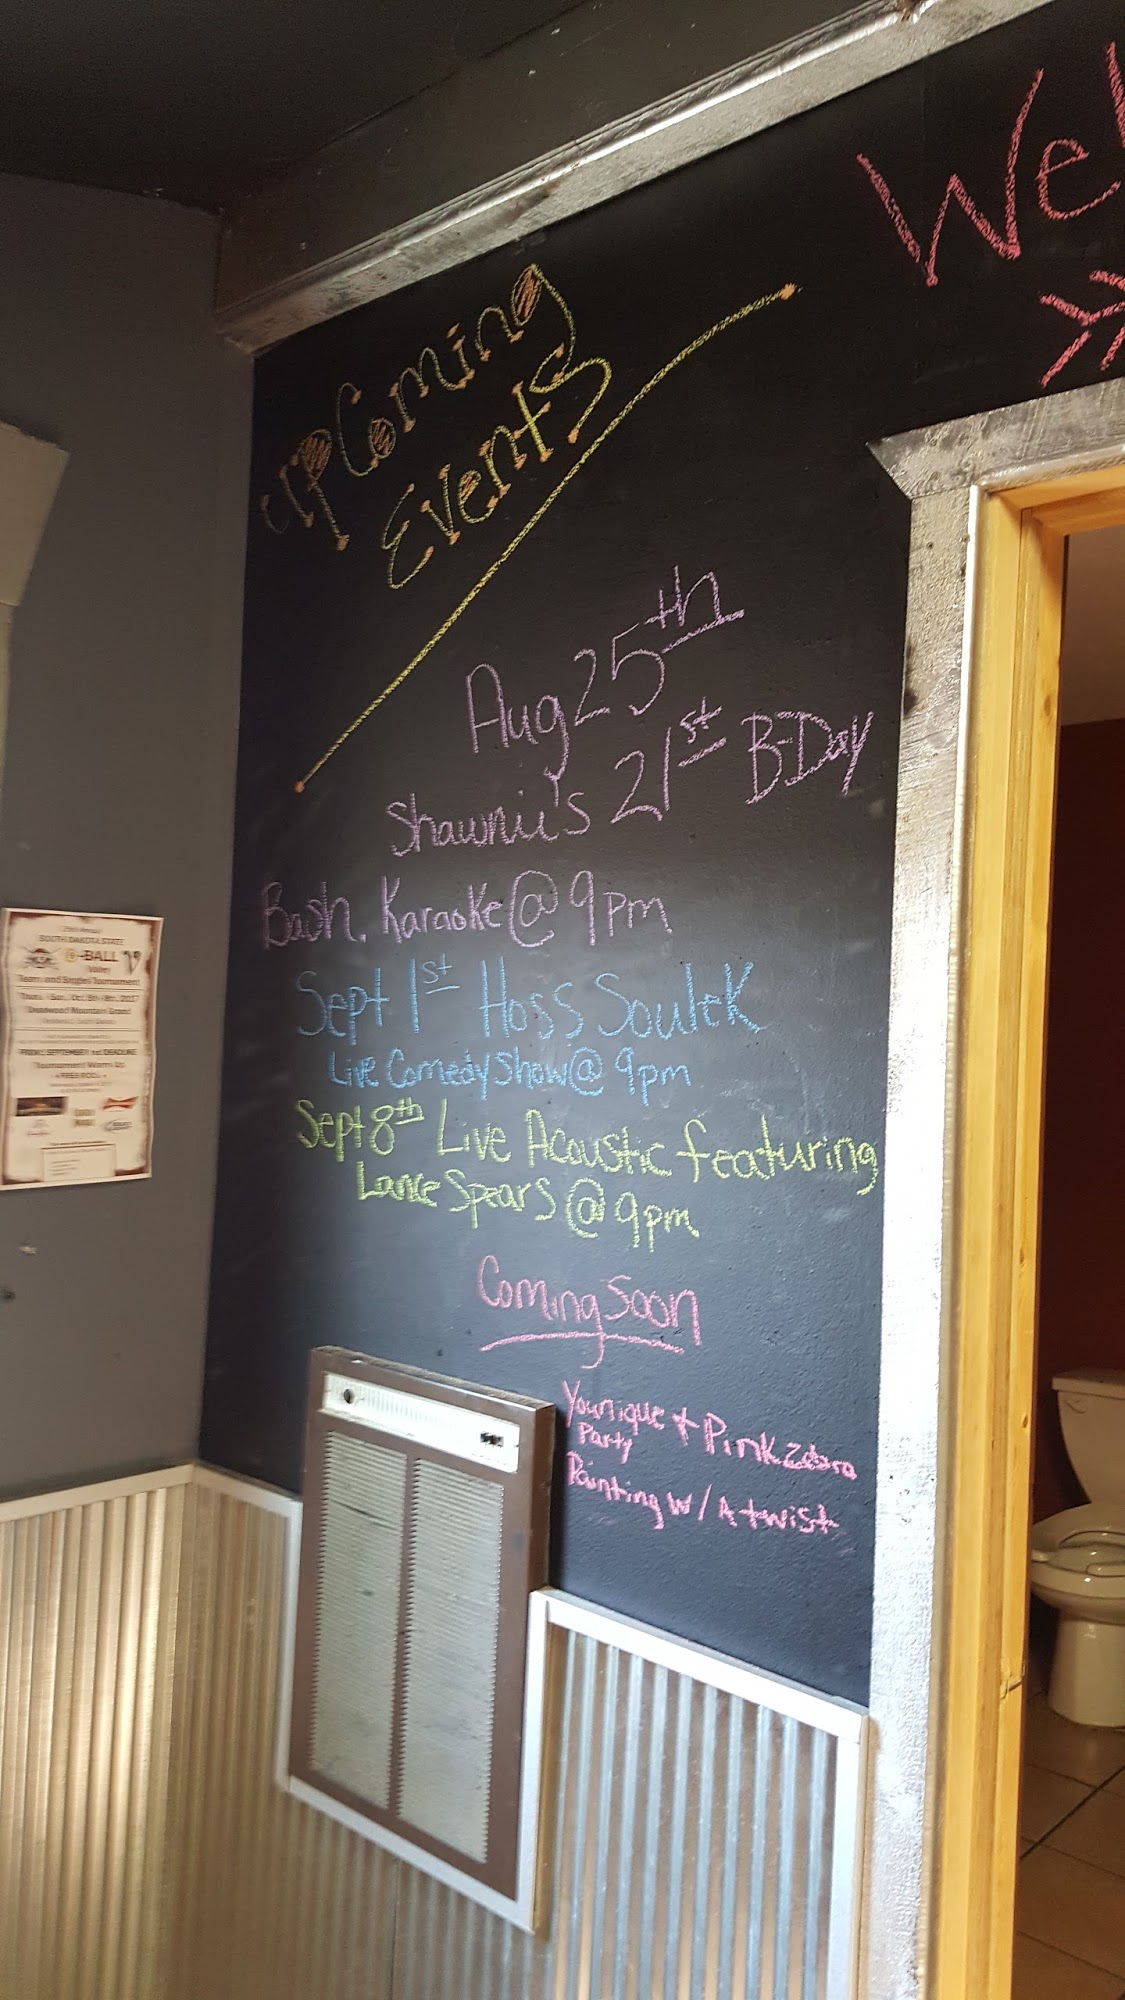 UpComing
Events
Wel
Aug 25th
Shawnii's 21st B-Day
Bash. Karaoke @ 9pm
Sept 1st Hoss Soulek
Live Comedy Show @ 9pm
Sept 8th Live Acoustic featuring
Lance Spears @ 9pm
Coming Soon
Younique + Pink Zebra
Party
Painting w/ A twist
SOUTH DAKOTA STATE
-BALL
Valley
Team and Singles Tournament
Deadwood Mountain Grand
FRIDAY, SEPTEMBER 1st DEADLINE
Tournament Warm Up